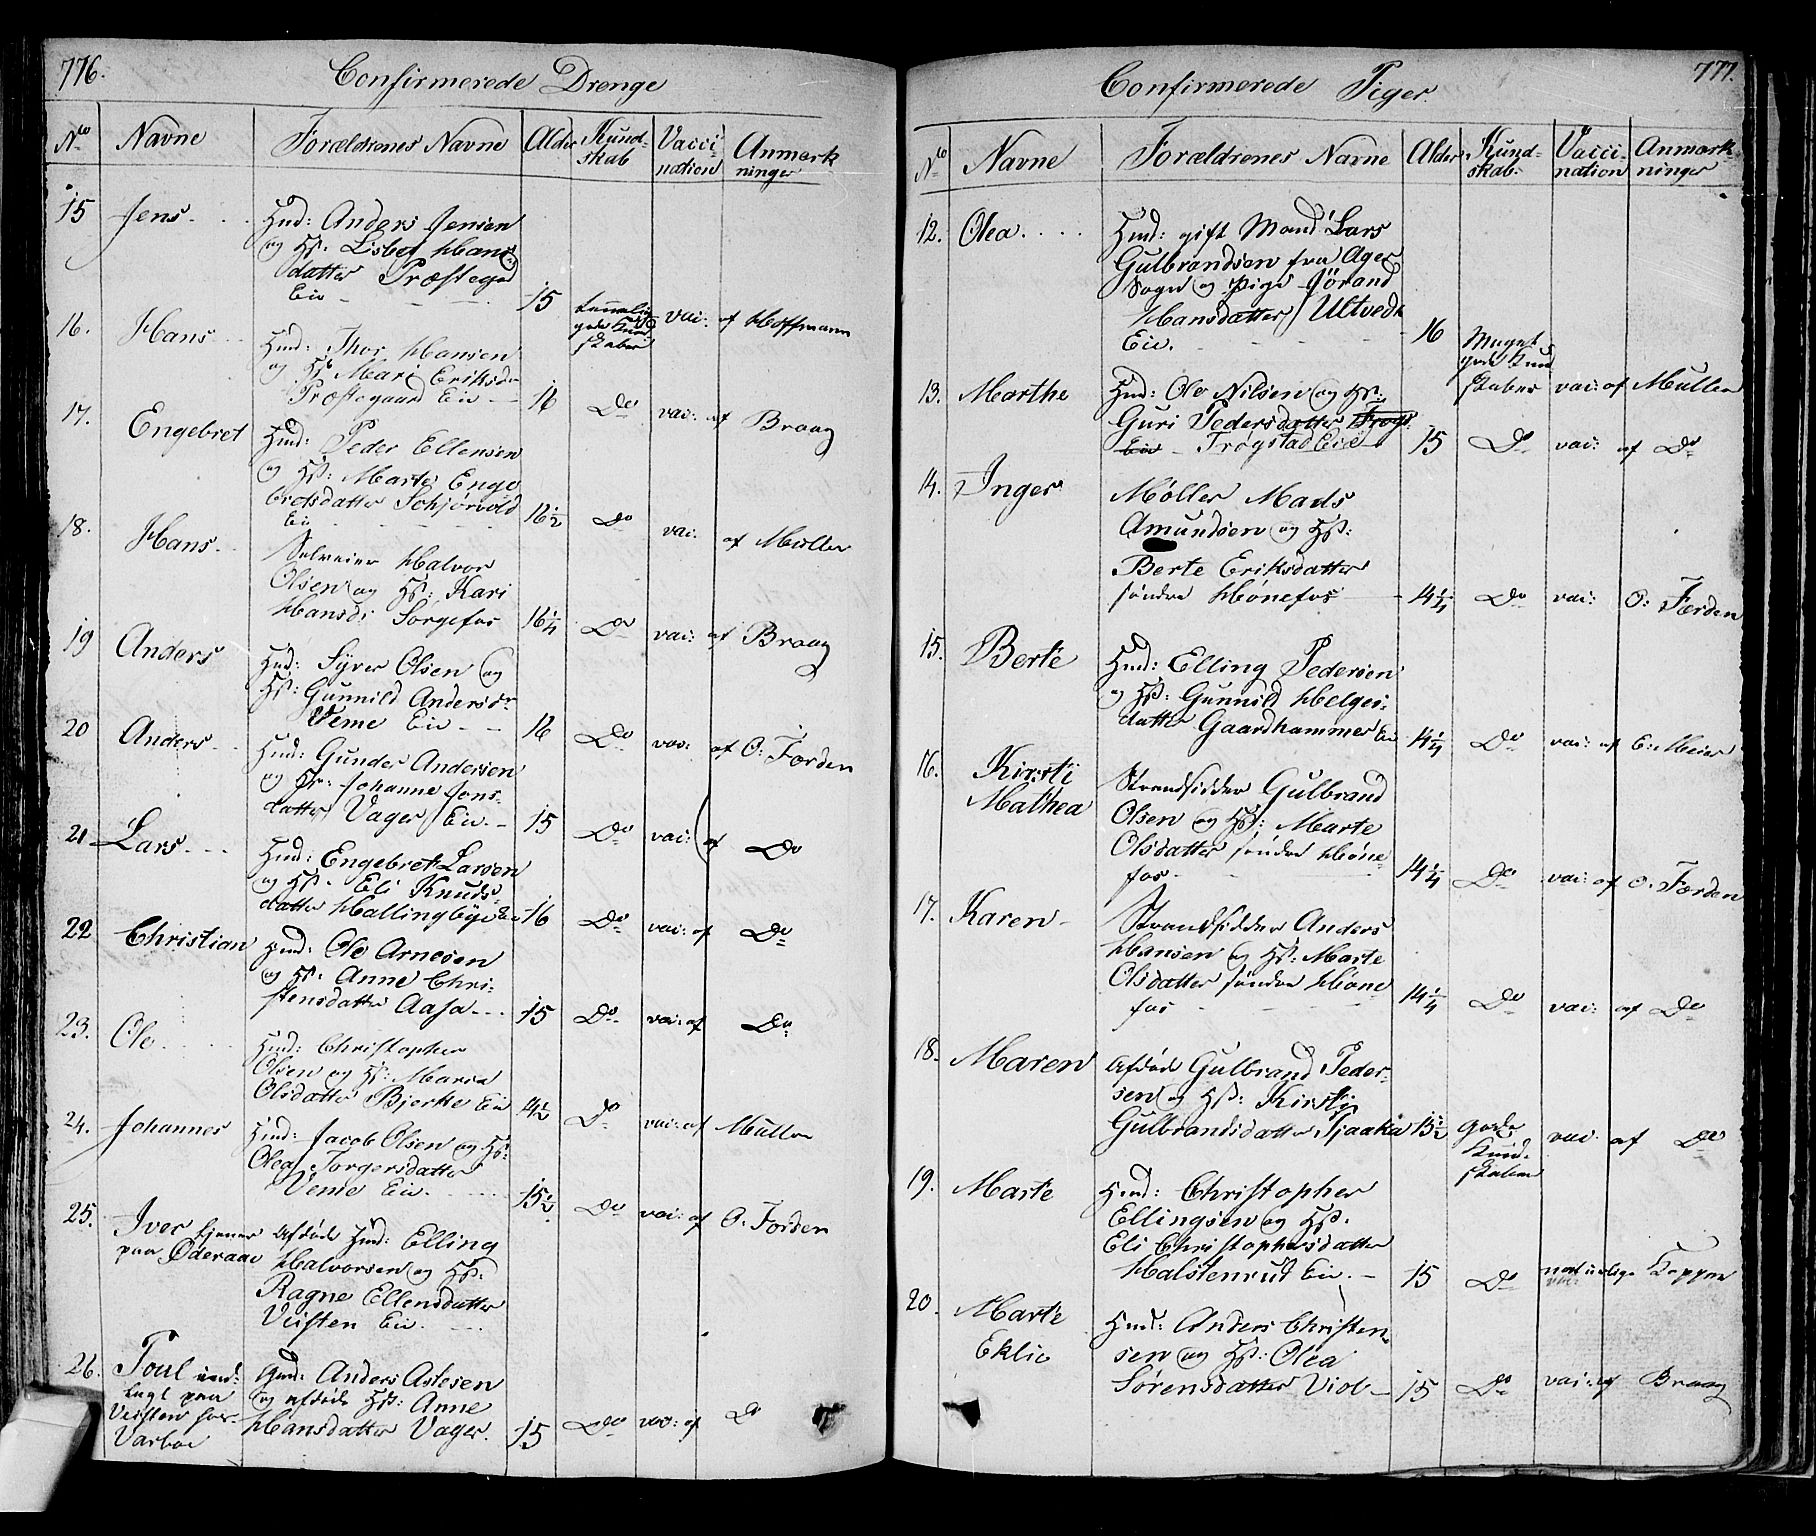 776.
Confirmerede Drenge
No Navne Forældrenes Navne Alder Kund- Vacci- Anmærk
skab nation ninger
15 Jens. Hmd: Anders Jensen
og Hst. Lisbet Hans
datter Præstegd
Eie 15 temelig vac: af Hoffmann
gode Kund
skaber
16. Hans Hmd: Thor Hansen
og Hst Mari Eriksd
Præstegaard Eie 16 Do vac: af Braag
17. Engebret Hmd: Peder Ellensen
og Hst: Marte Enge
bretsdatter Schjørvold
Ei 16 1/2 Do vac. af Müller
18. Hans Selveier Halvor
Olsen og Hst: Kari
Hansd: Sørgefos 16 1/4 Do vac: af Braag
19 Anders Hmd: Syver Olsen og
Hst: Gunnild Andersd
Veme Eie 16 Do vac: af O: Førden
20 Anders Hmd: Gunder Andersen
og Hst: Johanne Jons-
datter Vager Eie. 15 Do vac: af Do
21 Lars Hmd: Engebret Larsen
og Hst. Eli Knuds-
datter Hallingbye Eie 16 Do vac: af Do
22 Christian Hmd: Ole Arnesen
og Hst. Anne Chri-
stensdatter Aasa 15 Do vac: af Do
23. Ole Hmd: Christopher
Olsen og Hst: Maria
Olsdatter Bjerke Eie 14 1/2 Do vac: af Müller
24. Johannes Hmd: Jacob Olsen og Hst:
Olea Torgersdatter
Veme Eie. 15 1/2 Do vac: af O. Førden
25. Iver tjener Afdøde Hmd: Elling
paa Oderaae Halvorsen og Hst:
Ragne Ellensdatter
Veisten Eie.
26. Poul Hmd: Anders Astesen
lagt paa og afdøde Hst: Anne
Veisten Hansdatter Vager. 15 Do vac: af Do
777.
Confirmerede Piger
No Navne Forældrenes Navne Alder Kund- Vacci- Anmærk-
skab. nation ninger
12. Olea Hmd: gift Mand Lars
Gulbrandsen fra Ager
Sogn og Pige Jörand
Hansdatter Ultvedt
Eie. 16 Meget
gode Kund
skaber vac: af Müller
13. Marthe Hmd: Ole Nilsen og Hst:
Guri Pedersdatter Frogs
Eie Frogstad Eie 15 Do vac: af Do
14. Inger Møller Mads
Amundsen og Hst:
Berte Eriksdatter
søndre Hønefos 14 1/4 Do vac: O: Førden
15. Berte Hmd: Elling Pedersen
og Hst: Gunnild Helges-
datter Gaardhammer Eie 14 1/4 Do vac: af C: Meier
16. Kirsti Strandsidder Gulbrand
Mathea Olsen og Hst: Marte
Olsdatter søndre Høne-
fos. 14 1/4 Do vac: af O. Førden
17. Karen Strandsidder Anders
Hansen og Hst: Marte
Olsdatter søndre Høne
fos 14 1/4 Do vac: af Do
18. Maren Afdøde Gulbrand Peder-
sen og Hst: Kirsti
Gulbrandsdatter Tjaaka 15 1/2 gode vac. af Do
Kund-
skaber
19. Marte Hmd: Christopher
Ellingsen og Hst.
Eli Christophersdatter
Halstenrud Eie. 15 Do naturlige Kopper
20. Marte Hmd: Anders Christen
Eklie sen og Hst: Olea
Sørensdatter Viol 15 Do vac: af Braag